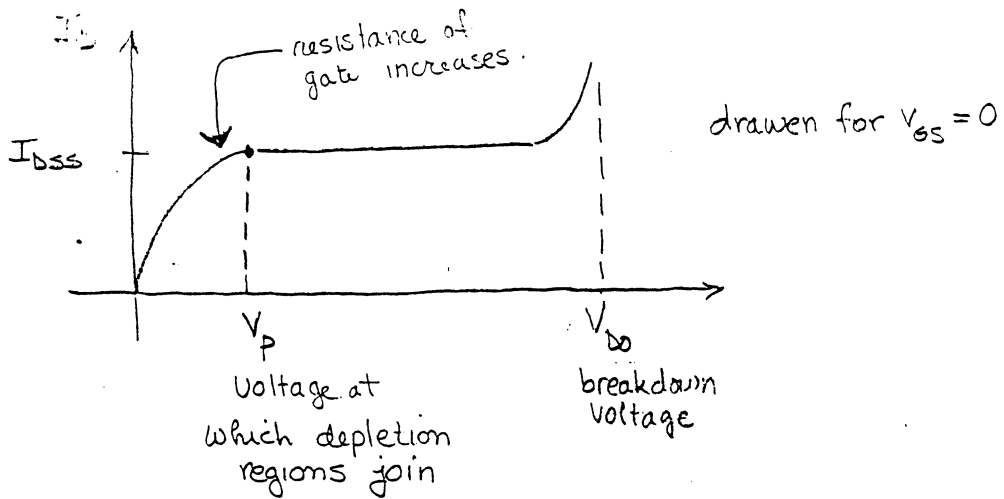 I_D
resistance of
gate increases.
drawen for V_GS = 0
I_DSS
V_P
V_DO
Voltage at
which depletion
regions join
breakdown
voltage